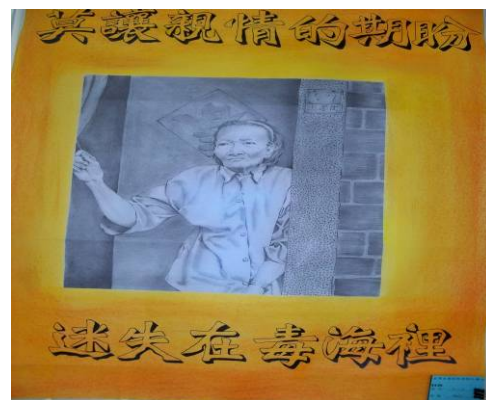 莫讓親情的期盼
迷失在毒海裡